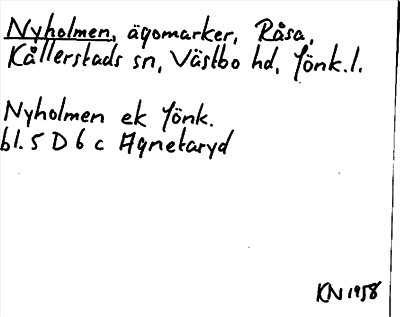 Nyholmen, ägomarker, Råsa,
Kållerstads sn, Västbo hd, Jönk.l.
Nyholmen ek Jönk.
bl. 5 D 6 c Agnetaryd
KN 1958